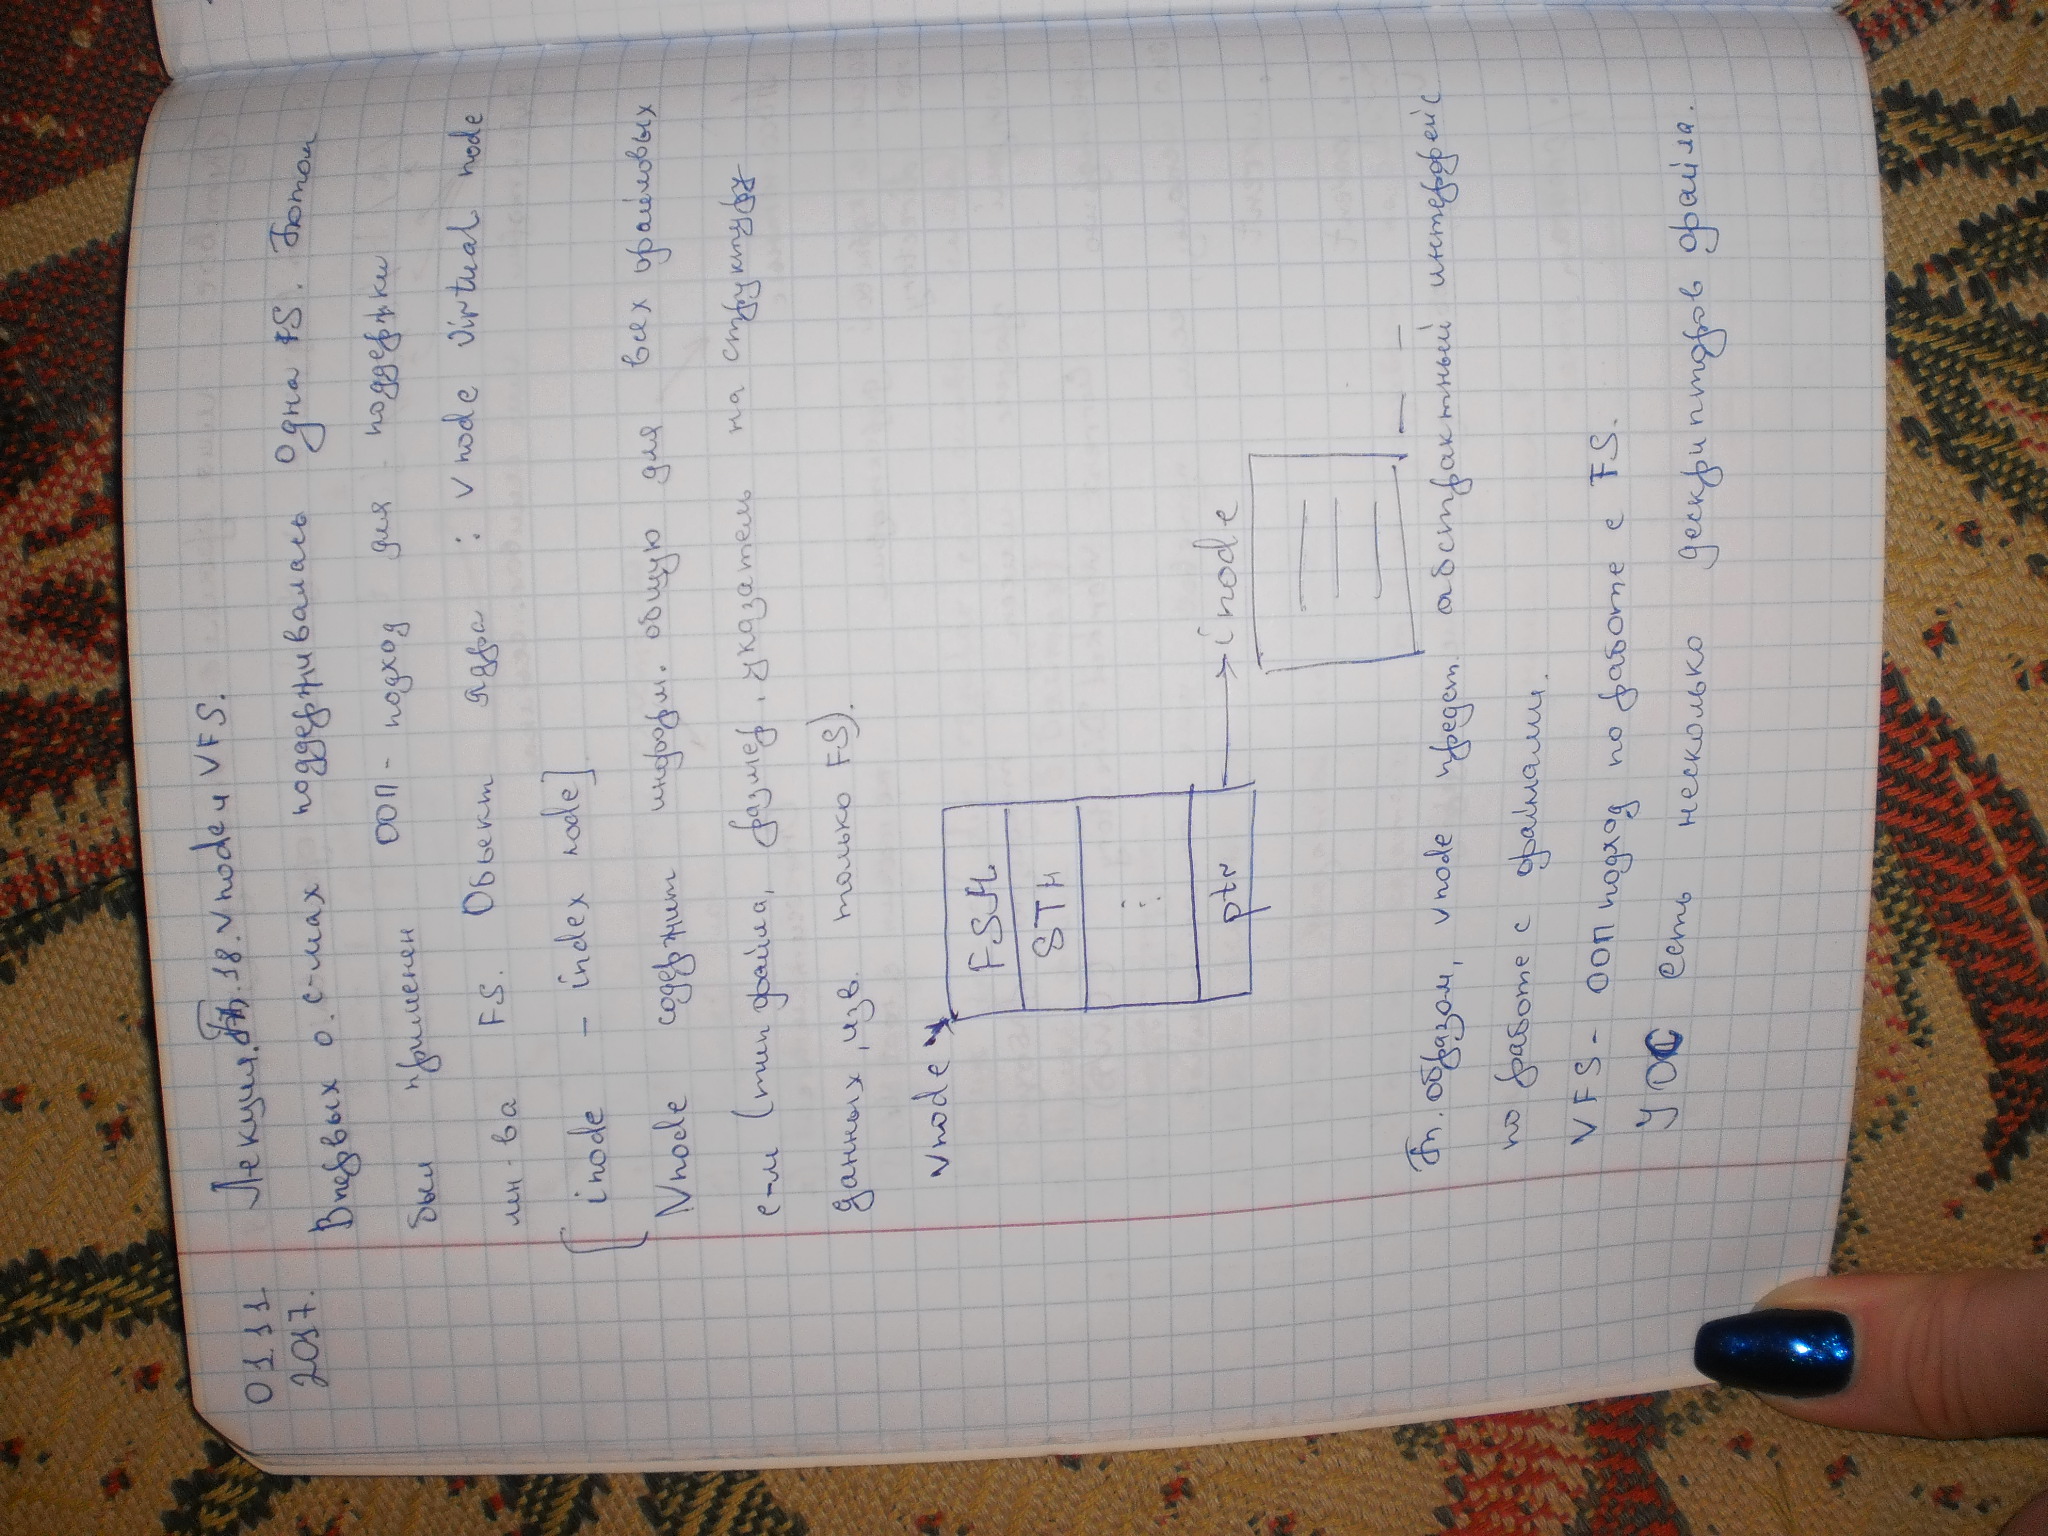 01 11
2017.
Лекция. 18. Vnode и VFS.
В первых о.с-мах поддерживалась одна FS. Потом
был применен ООП-подход для поддержки
мн-ва FS. Объект ядра : vnode virtual node
[ inode - index node]
Vnode содержит информ. общую для всех файловых
с-м (тип файла, размер, указатель на структуру
данных, изв. только FS).
vnode
FSH
STH
⋮
ptr
inode
Т.образом, vnode предст. абстрактный интерфейс
по работе с файлами.
VFS - ООП подход по работе с FS.
У ОС есть несколько дескрипторов файла.